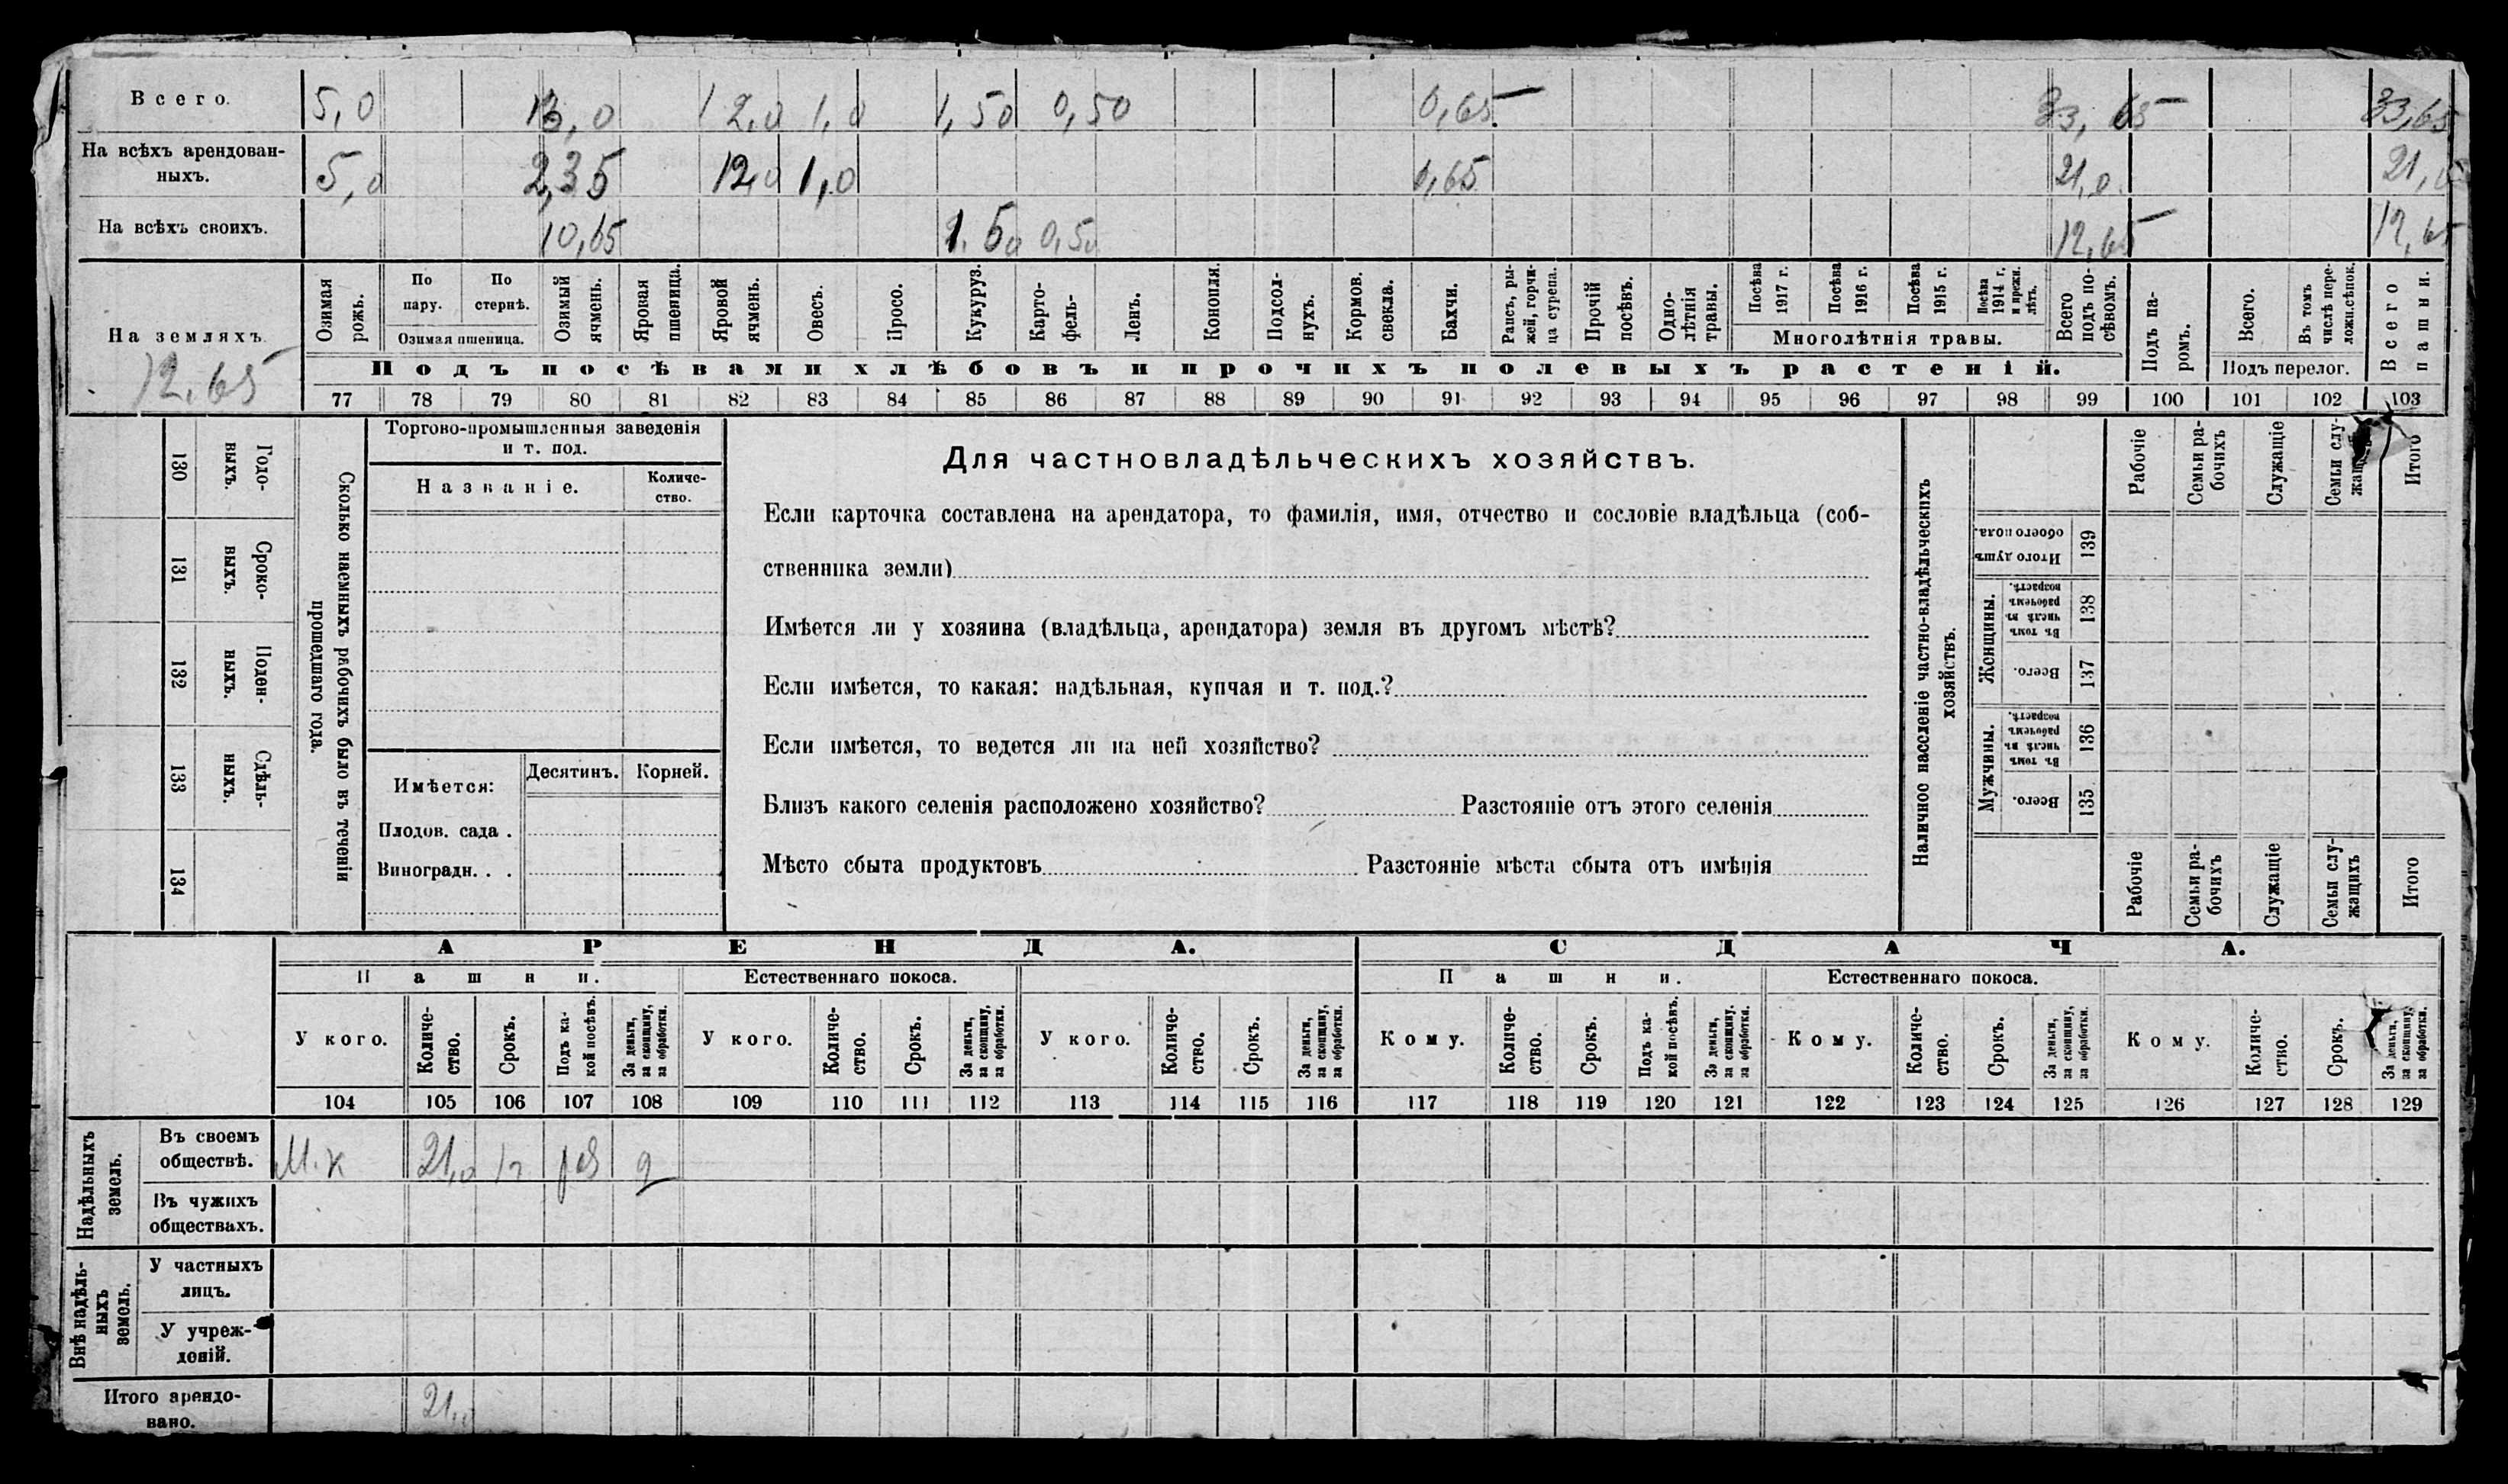 Всего. 5,0 13,0 12,0 1,0 1,50 0,50 0,65 33,65 33,65
На всѣхъ арендован-
ныхъ. 5,0 2,35 12,0 1,0 0,65 21,0 21,0
На всѣхъ своихъ. 10,65 1.50 0,50 12,65 12,65
На земляхъ.
12,65
Озимая рожь.
По пару.
По стернѣ.
Озимая пшеница.
Озимый ячмень.
Яровая пшеница.
Яровой ячмень.
Овесъ.
Просо.
Кукуруз.
Карто-
фель-
Ленъ.
Конопля.
Подсол-
нухъ.
Кормов. свекла.
Бахчи.
Рапсъ, ры-
жей, горчи-
ца сурепа.
Прочій посѣвъ.
Одно-
лѣтнія травы.
Посѣва 1917 г.
Посѣва 1916 г.
Посѣва 1915 г.
Посѣва 1914 г. и прежн. лѣтъ.
Многолѣтнія травы.
Всего подъ по-
сѣвомъ.
Подъ па-
ромъ.
Всего.
Въ томъ числѣ пере-
ложн.сѣнок.
Подъ перелог.
Всего пашни.
Подъ посѣвами хлѣбовъ и прочихъ полевыхъ растеній.
77 78 79 80 81 82 83 84 85 86 87 88 89 90 91 92 93 94 95 96 97 98 99 100 101 102 103
130 Годо-
выхъ.
131 Сроко-
выхъ.
132 Поден-
ныхъ.
133 Сдѣль-
ныхъ.
134
Сколько наемныхъ рабочихъ было въ теченіи
прошедшаго года.
Торгово-промышленныя заведенія
и т. под.
Названіе. Количе-
ство.
Имѣется: Десятинъ. Корней.
Плодов. сада .
Виноградн. . .
Для частновладѣльческихъ хозяйствъ.
Если карточка составлена на арендатора, то фамилія, имя, отчество и сословіе владѣльца (соб-
ственника земли)
Имѣется ли у хозяина (владѣльца, арендатора) земля въ другомъ мѣстѣ?
Если имѣется, то какая: надѣльная, купчая и т. под.?
Если имѣется, то ведется ли на ней хозяйство?
Близъ какого селенія расположено хозяйство? Разстояніе отъ этого селенія
Мѣсто сбыта продуктовъ Разстояніе мѣста сбыта отъ имѣнія
Наличное населеніе частно-владѣльческихъ
хозяйствъ.
Рабочіе
Семьи ра-
бочихъ
Служащіе
Семьи слу-
жащихъ
Итого
Итого душъ обоего пола. 139
Женщины.
Въ томъ числѣ въ рабочемъ возрастѣ. 138
Всего. 137
Мужчины.
Въ томъ числѣ въ рабочемъ возрастѣ. 136
Всего. 135
Рабочіе
Семьи ра-
бочихъ
Служащіе
Семьи слу-
жащихъ
Итого
АРЕНДА. СДАЧА.
Пашни. Естественнаго покоса. Пашни. Естественнаго покоса.
У кого.
Количе-
ство.
Срокъ.
Подъ ка-
кой посѣвъ.
За деньги, за скопщину, за обработки.
У кого.
Количе-
ство.
Срокъ.
За деньги, за скопщину, за обработки.
У кого.
Количе-
ство.
Срокъ.
За деньги, за скопщину, за обработки.
Кому.
Количе-
ство.
Срокъ.
Подъ ка-
кой посѣвъ.
За деньги, за скопщину. за обработки.
Кому.
Количе-
ство.
Срокъ.
За деньги, за скопщину, за обработки.
Кому.
Количе-
ство.
Срокъ.
За деньги, за скопщину, за обработки.
104 105 106 107 108 109 110 111 112 113 114 115 116 117 118 119 120 121 122 123 124 125 126 127 128 129
Надѣльныхъ земель.
Въ своемъ
обществѣ. М.к 21,0
Въ чужихъ
обществахъ.
Внѣ надѣль-
ныхъ земель.
У частныхъ
лицъ.
У учреж-
деній.
Итого арендо-
вано. 21,0